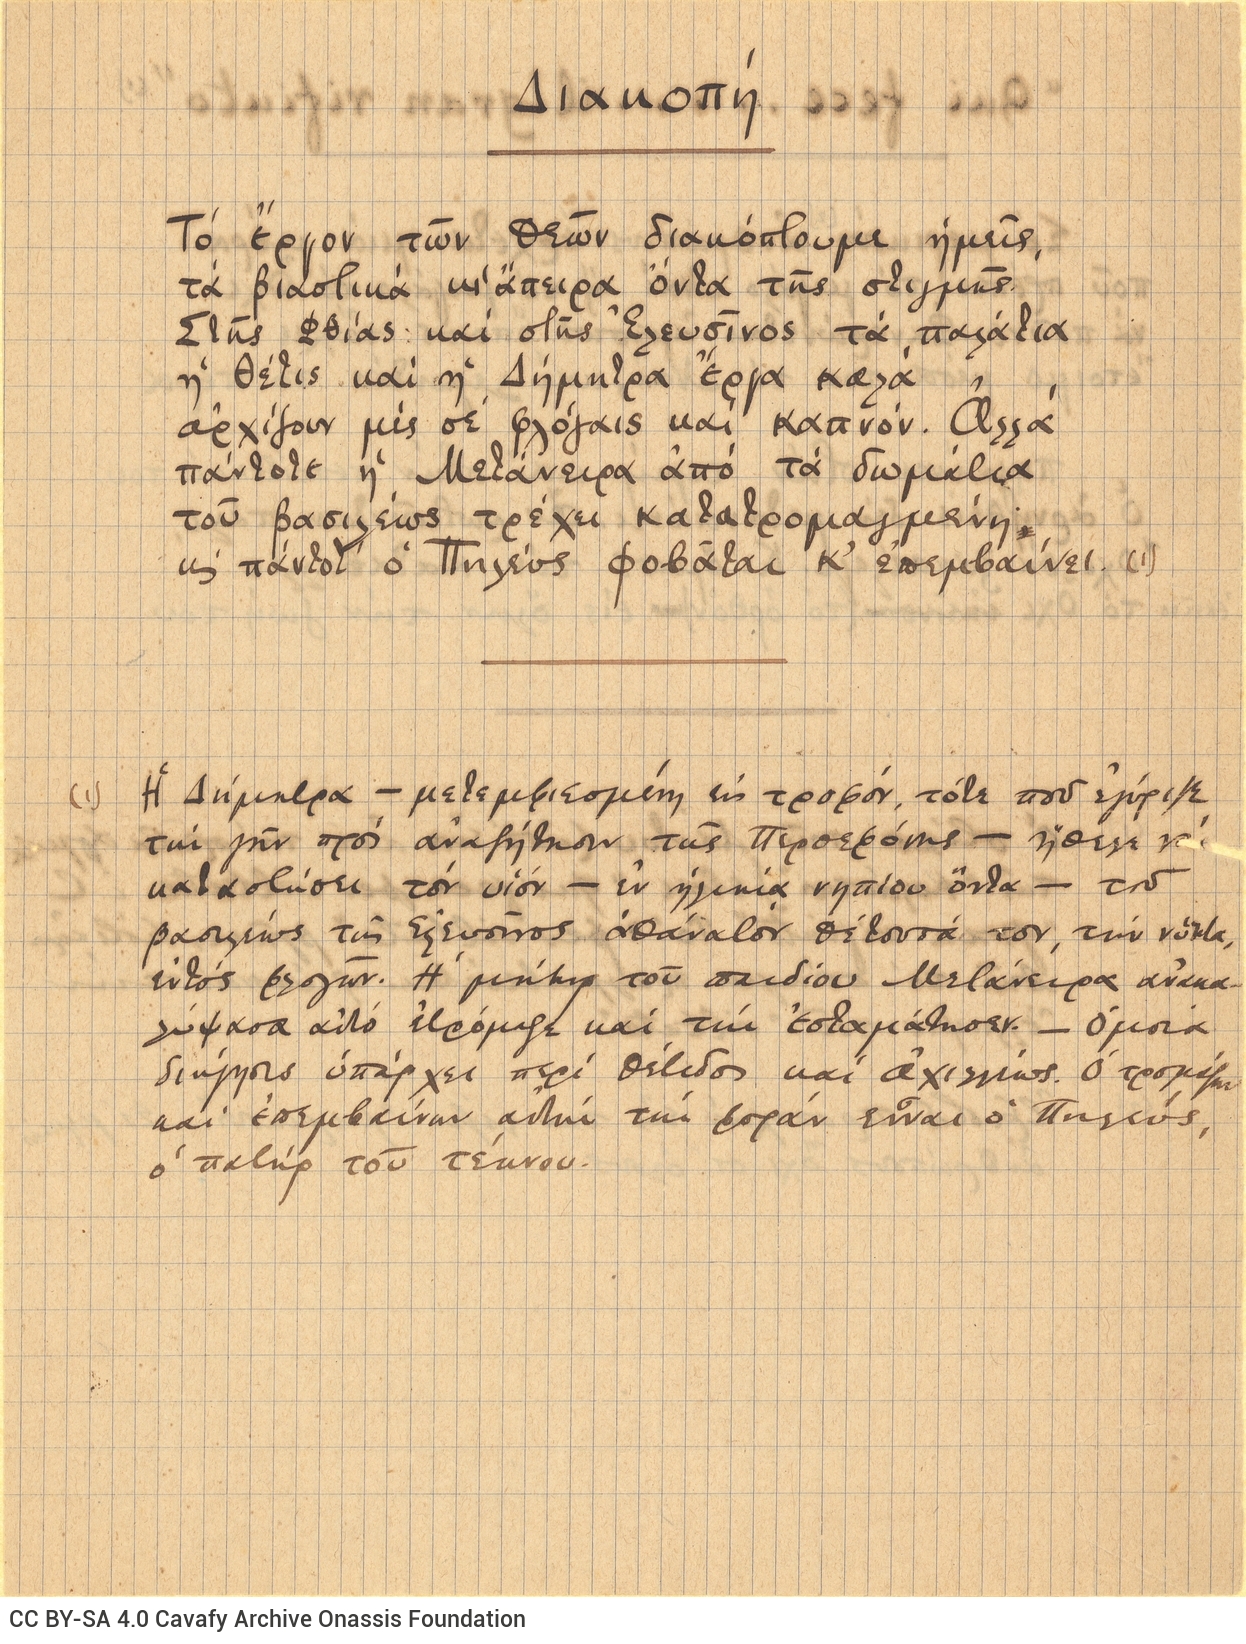 Διακοπή
Τό ἔργον τῶν θεῶν διακόπτουμε ἡμεῖς,
τά βιαστικά κι' ἄπειρα ὄντα τῆς στιγμῆς.
Στῆς Φθίας καί στῆς Ἐλευσῖνος τά παλάτια
ἡ Θέτις καί ἡ Δήμητρα ἔργα καλά
ἀρχίζουν μές σέ φλόγαις καί καπνόν. Ἀλλά
πάντοτε ἡ Μετάνειρα ἀπό τά δωμάτια
τοῦ βασιλέως τρέχει κατατρομαγμένη,
κι πάντοτ' ὁ Πηλεύς φοβᾶται κ' ἐπεμβαίνει. (1)
(1) Ἡ Δήμητρα — μετεμφιεσμένη εἰς τροφόν, τότε πού ἐγύριζε
τήν γῆν πρός ἀναζήτησιν τῆς Περσεφόνης — ἤθελε νά
καταστήσει τόν υἱόν — ἐν ἡλικίᾳ νηπίου ὄντα — τοῦ
βασιλέως τῆς Ἐλευσῖνος ἀθάνατον θέτουσά τον, τήν νύκτα,
ἐντός φλογῶν. Ἡ μήτηρ τοῦ παιδίου Μετάνειρα ἀνακα-
λύψασα αὐτό ἐτρόμαξε καί τήν ἐσταμάτησεν. — Ὁμοία
διήγησις ὑπάρχει περί Θέτιδος καί Ἀχιλλέως. Ὁ τρομάξας
καί ἐπεμβαίνων αὐτήν τήν φοράν εἶναι ὁ Πηλεύς,
ὁ πατήρ τοῦ τέκνου.
CC BY-SA 4.0 Cavafy Archive Onassis Foundation